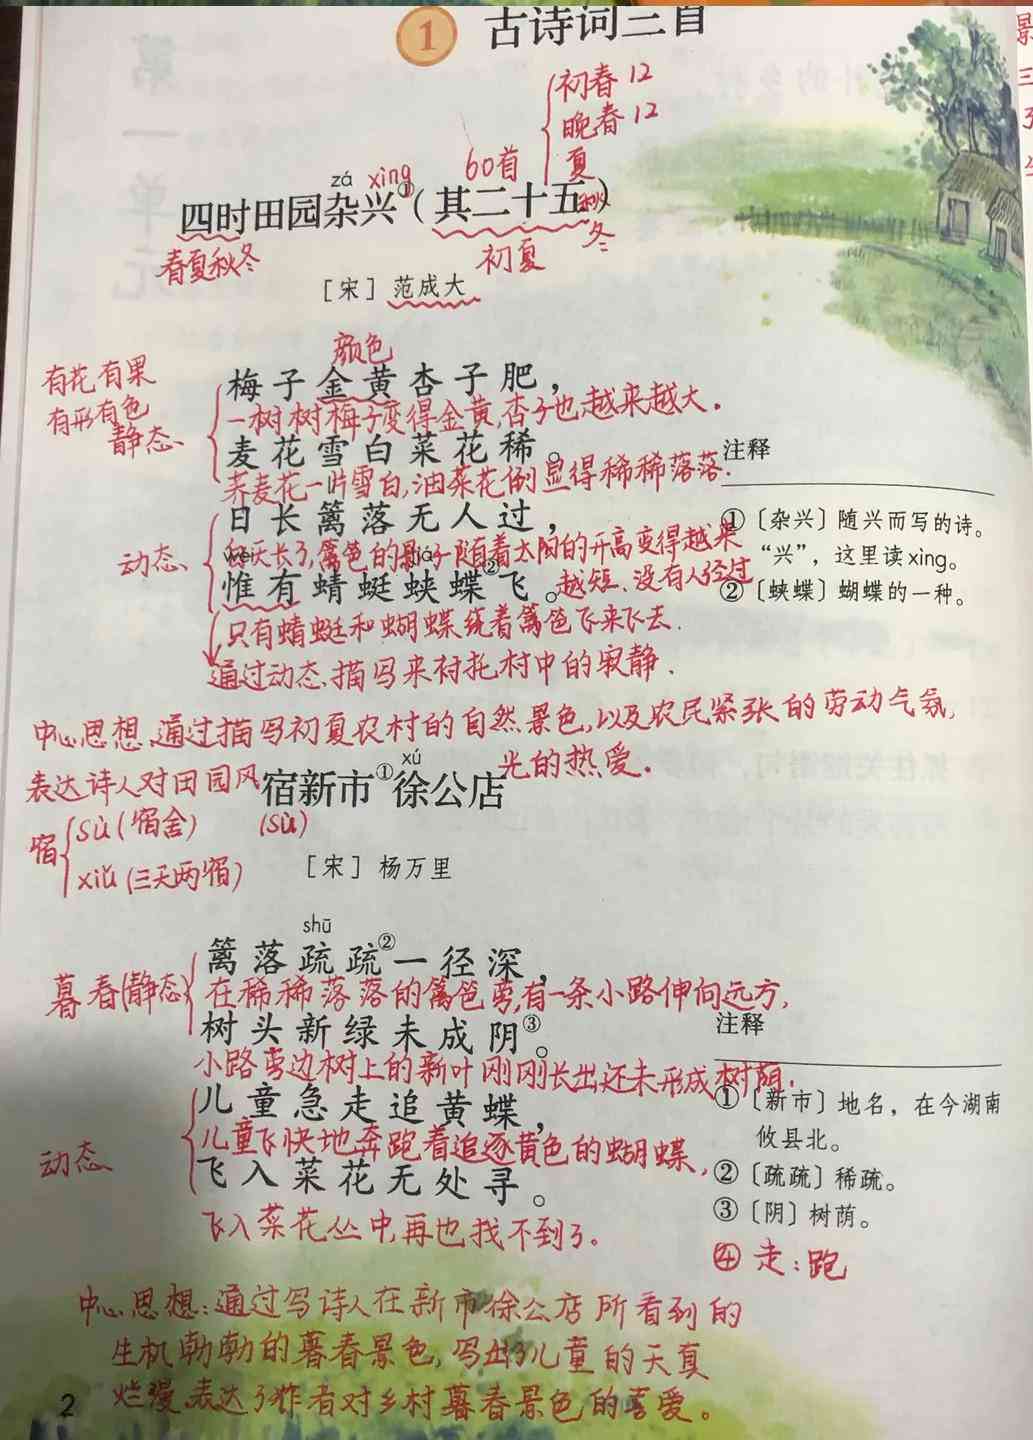 1 古诗词三首
初春12
晚春12
60首
夏
秋
冬
zá xìng
四时田园杂兴①（其二十五）
春夏秋冬
初夏
［宋］范成大
颜色
有花有果
有形有色
静态、
梅子金黄杏子肥，
一树树梅子变得金黄，杏子也越来越大。
麦花雪白菜花稀。
荞麦花一片雪白，油菜花倒显得稀稀落落.
动态、
日长篱落无人过，
白天长了，篱笆的影子随着太阳的升高变得越来
越短、没有人经过
wéi jiá
惟有蜻蜓蛱蝶②飞。
只有蜻蜓和蝴蝶绕着篱笆飞来飞去.
通过动态、描写来衬托村中的寂静.
中心思想、通过描写初夏农村的自然景色，以及农民紧张的劳动气氛，
表达诗人对田园风
光的热爱.
注释
①〔杂兴〕随兴而写的诗。
“兴”，这里读xìng。
②〔蛱蝶〕蝴蝶的一种。
xú
宿新市①徐公店
(sù)
宿
sù（宿舍）
xiǔ（三天两宿）
［宋］杨万里
暮春(静态)
shū
篱落疏疏②一径深，
在稀稀落落的篱笆旁，有一条小路伸向远方，
树头新绿未成阴③。
小路旁边树上的新叶刚刚长出还未形成树荫.
动态
儿童急走追黄蝶，
儿童飞快地奔跑着追逐黄色的蝴蝶，
飞入菜花无处寻。
飞入菜花丛中，再也找不到了。
注释
①〔新市〕地名，在今湖南
攸县北。
②〔疏疏〕稀疏。
③〔阴〕树荫。
④ 走：跑
中心思想：通过写诗人在新市徐公店所看到的
生机勃勃的暮春景色，写出了儿童的天真
烂漫、表达了作者对乡村暮春景色的喜爱。
2